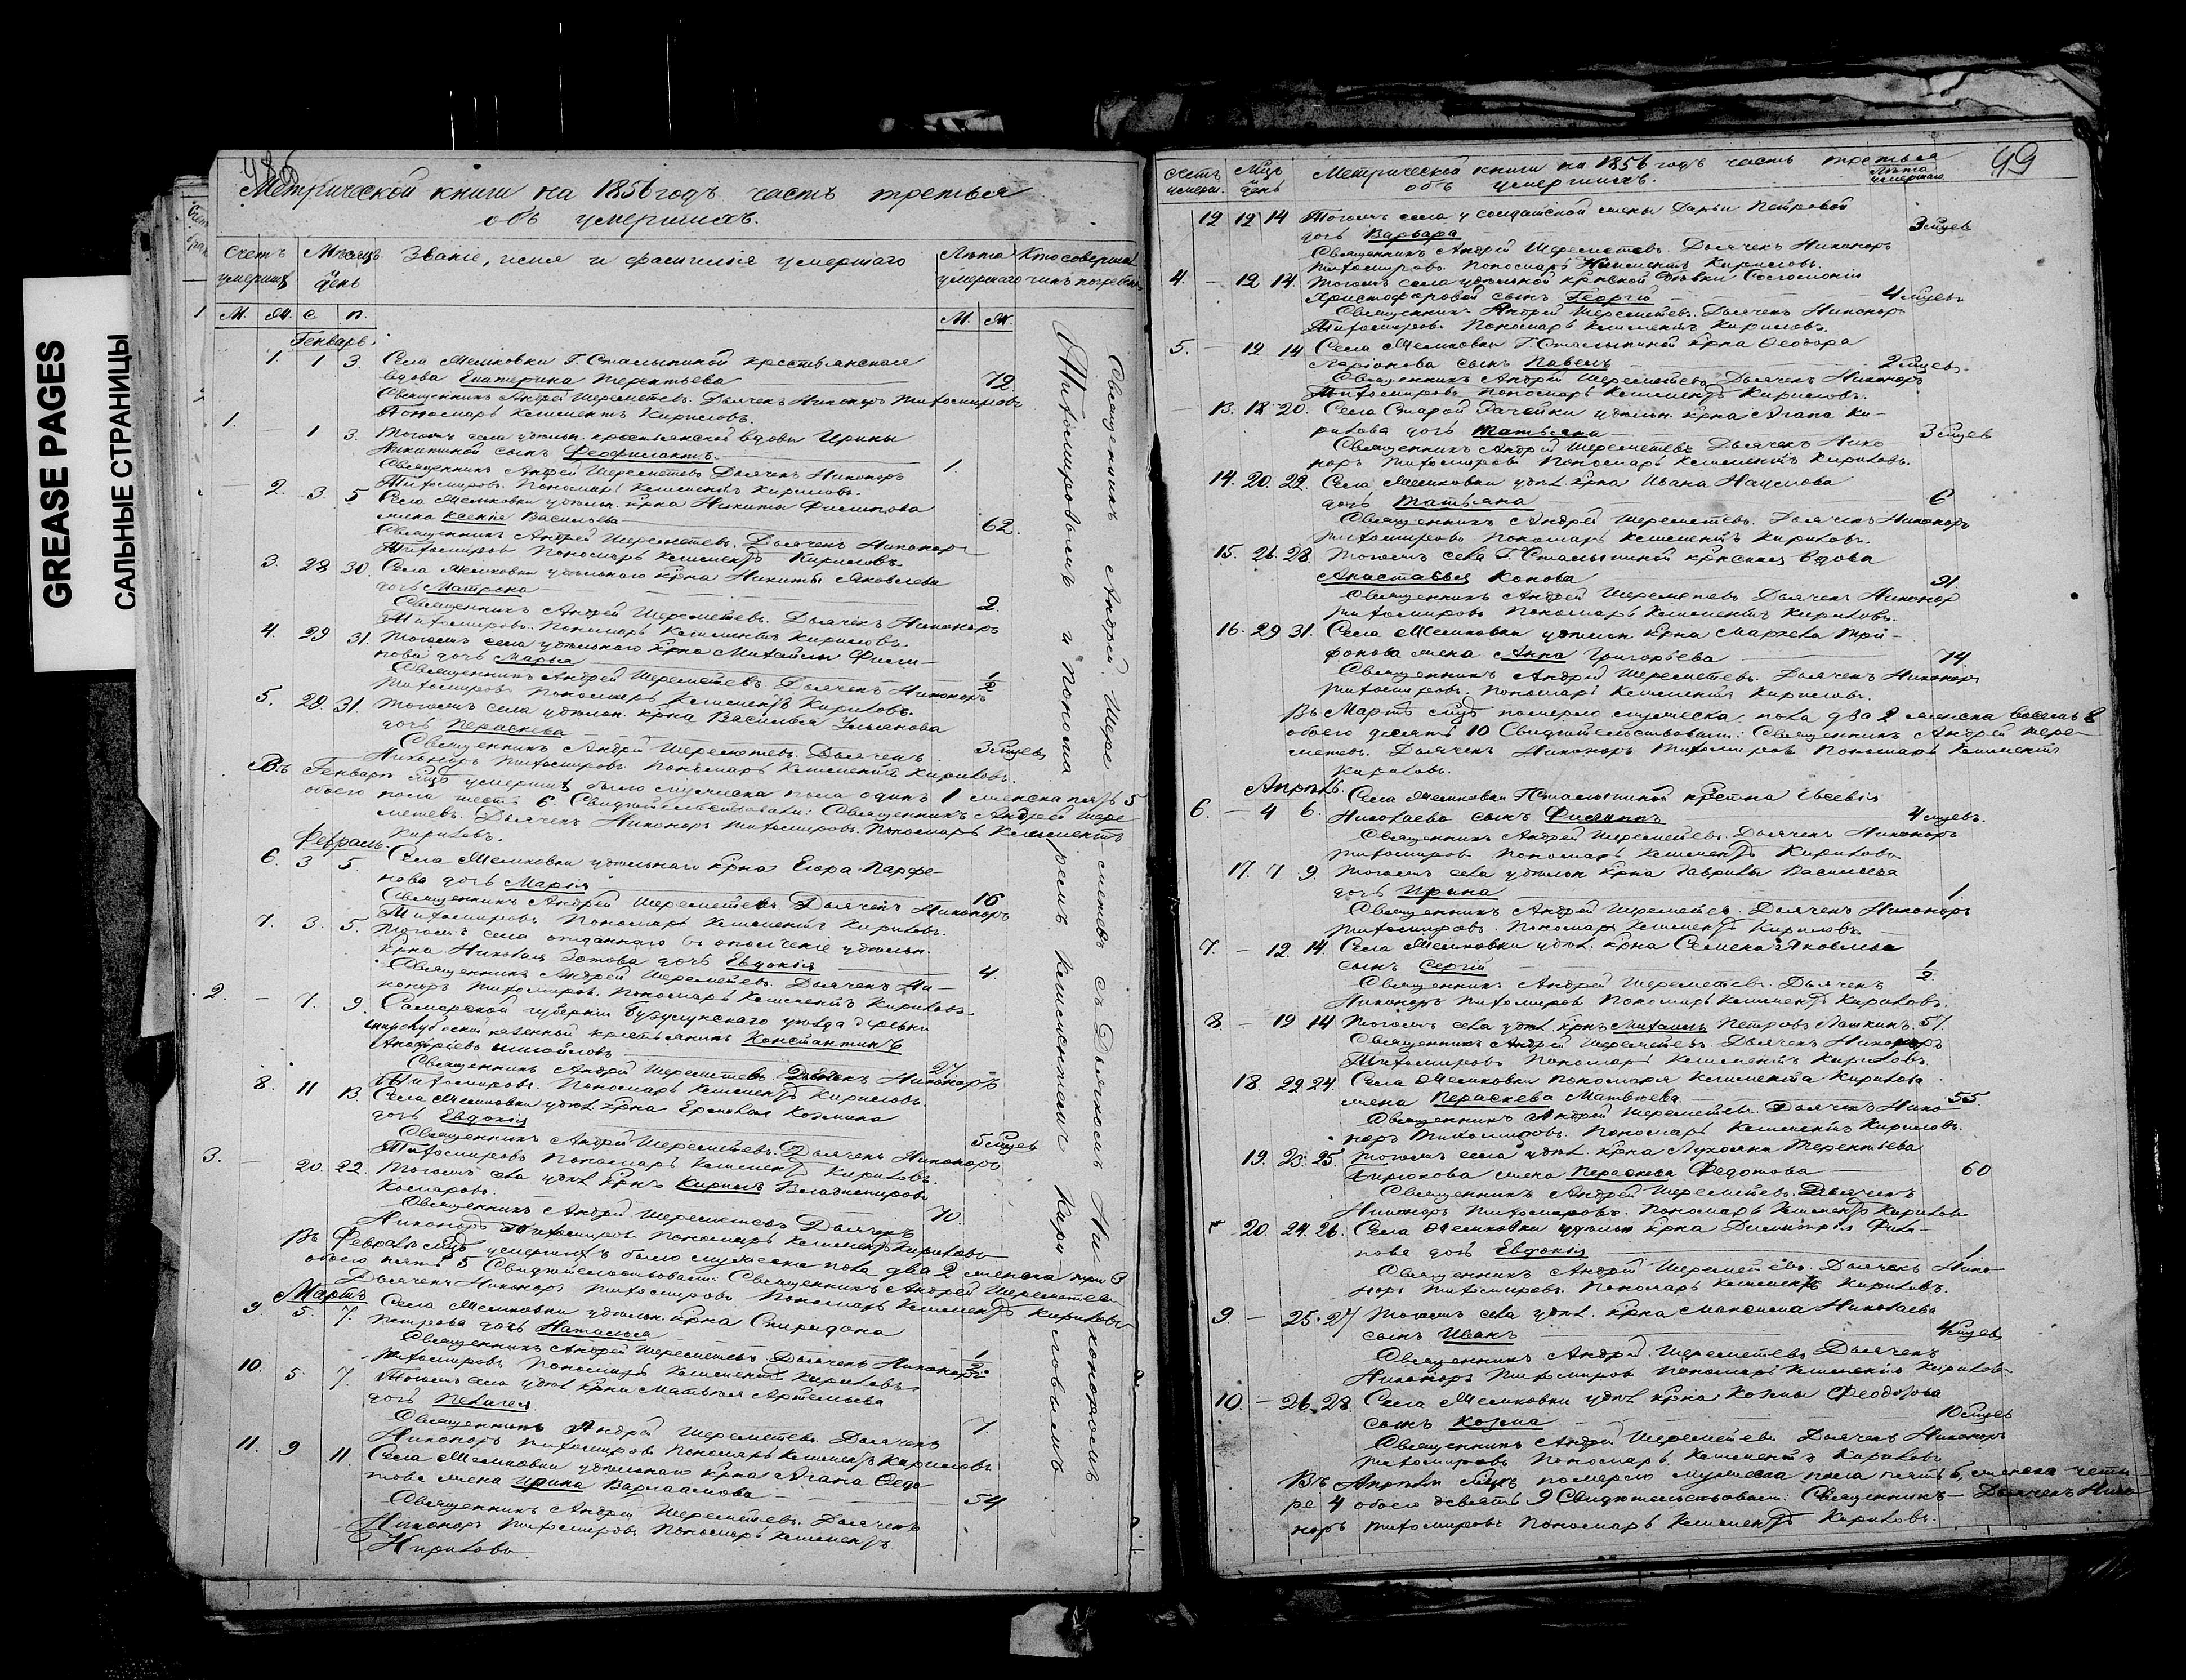 GREASE PAGES
САЛЬНЫЕ СТРАНИЦЫ
Метрической книги на 1856 годъ часть третья
объ умершихъ.
Счетъ умершихъ Мѣсяцъ день Званіе, имя и фамилія умершаго Лѣта умершаго Кто совершалъ чинъ погребе
М. Ж. С. П. М. Ж.
Генварь
1. 1 3. Села Г. Столыпиной крестьянская
вдова Екатерина Терентьева 72
Священникъ Андрей Шереметевъ. Дьячекъ Никоноръ Тихомировъ
Пономарь Климентъ Кириловъ.
1. – 1 3. Тогожъ села удѣльн. крестьянской вдовы Ирины
Никитиной сынъ Феофилактъ 1.
Священникъ Андрей Шереметевъ Дьячекъ Никоноръ
Тихомировъ. Пономарь Климентъ Кириловъ.
– 2. 3. 5 Села удѣльн. крна Никиты Филипова
жена Ксенія Васильева 62.
Священникъ Андрей Шереметевъ. Дьячекъ Никоноръ
Тихомировъ Пономарь Климентъ Кириловъ
3. 28 30. Села удѣльнаго крна Никиты Яковлева
дочь Матрона 2.
Священникъ Андрей Шереметевъ. Дьячекъ Никоноръ
Тихомировъ. Пономарь Климентъ Кириловъ.
4. 29 31. Тогожъ села удѣльнаго крна Михайлы Фили-
пова дочь Марья 1/2
Священникъ Андрей Шереметевъ Дьячекъ Никоноръ
Тихомировъ Пономарь Климентъ Кириловъ.
5. 29. 31. Тогожъ села удѣльн. крна Василья Ульянова
дочь Параскева 3 мцев
Священникъ Андрей Шереметевъ. Дьячекъ
Никоноръ Тихомировъ Пономарь Климентъ Кириловъ.
Въ Генварѣ мцѣ умершихъ было мужеска пола одинъ 1 женска пять 5
обоего пола шесть 6. Свидѣтельствовали: Священникъ Андрей Шере-
метевъ. Дьячекъ Никоноръ Тихомировъ. Пономарь Климентъ
Кириловъ.
Февраль.
6. 3 5. Села удѣльнаго крна Егора Парфе-
нова дочь Марія 16
Священникъ Андрей Шереметевъ. Дьячекъ Никоноръ
Тихомировъ Пономарь Климентъ Кириловъ.
7. 3. 5. Тогожъ села отданнаго въ ополченіе удѣльн.
крна Николая Зотова дочь Евдокія 4.
Священникъ Андрей Шереметевъ. Дьячекъ Ни-
коноръ Тихомировъ. Пономарь Климентъ Кириловъ.
2. – 7. 9. Самарской губерніи Бузулукскаго уѣзда деревни
казенный крестьянинъ Константинъ
27
Священникъ Андрей Шереметевъ. Дьячекъ Никоноръ
Тихомировъ. Пономарь Климентъ Кириловъ.
8. 11 13. Села удѣл. крна Ермолая Козмина
дочь Евдокія 5 мцев
Священникъ Андрей Шереметевъ. Дьячекъ Никоноръ
Тихомировъ Пономарь Климентъ Кириловъ.
3. – 20. 22. Тогожъ села удѣл. крнъ Кирилъ Владиміровъ
Комаровъ. 70.
Священникъ Андрей Шереметевъ Дьячекъ
Никоноръ Тихомировъ Пономарь Климентъ Кириловъ
Въ Февралѣ мцѣ умершихъ было мужеска пола два 2 женска три 3
обоего пять 5 Свидѣтельствовали: Священникъ Андрей Шереметевъ
Дьячекъ Никоноръ Тихомировъ Пономарь Климентъ Кириловъ
Мартъ
9. 5. 7. Села удѣльн. крна Спиридона
Петрова дочь Наталья 1/2
Священникъ Андрей Шереметевъ Дьячекъ Никоноръ
Тихомировъ Пономарь Климентъ Кириловъ.
10. 5. 7. Тогожъ села удѣл крна Матвѣя Артемьева
дочь Пелагея 7.
Священникъ Андрей Шереметевъ. Дьячекъ
Никоноръ Тихомировъ Пономарь Климентъ Кириловъ
11. 9 11. Села удѣльнаго крна Агапа Федо-
това жена Ирина Варлаамова 54
Священникъ Андрей Шереметевъ. Дьячекъ
Никоноръ Тихомировъ Пономарь Климентъ
Кириловъ.
Священникъ Андрей Шереметевъ съ Дьячкомъ Никоноромъ
Тихомировымъ и Пономаремъ Климентомъ Кириловымъ
49
Счетъ умерш. Мцъ и день Метрической книги на 1856 годъ часть третья
объ умершихъ. Лѣта умершаго
12 12 14 Тогожъ села у солдатской жены Дарьи Петровой
дочь Варвара 3 мцев
Священникъ Андрей Шереметевъ. Дьячекъ Никоноръ
Тихомировъ. Пономарь Климентъ Кириловъ.
4. – 12 14. Тогожъ села удѣльной крнской дѣвки Соломоніи
Христофоровой сынъ Георгій 4 мцев
Священникъ Андрей Шереметевъ. Дьячекъ Никоноръ
Тихомировъ. Пономарь Климентъ Кириловъ.
5. – 12 14 Села Г. Столыпиной крна Феодора
Ларіонова сынъ Павелъ 2 мцев.
Священникъ Андрей Шереметевъ. Дьячекъ Никоноръ
Тихомировъ Пономарь Климентъ Кириловъ.
13. 18 20. Села Старой Рачейки удѣльн. крна Агапа Ки-
рилова дочь Татьяна 3 мцев
Священникъ Андрей Шереметевъ Дьячекъ Нико-
норъ Тихомировъ Пономарь Климентъ Кириловъ.
14. 20. 22. Села удѣл крна Ивана Наумова
дочь Татьяна 6
Священникъ Андрей Шереметевъ. Дьячекъ Никоноръ
Тихомировъ Пономарь Климентъ Кириловъ.
15. 26. 28. Тогожъ села Г. Столыпиной крнская вдова
Анастасья Конова 91.
Священникъ Андрей Шереметевъ Дьячекъ Никоноръ
Тихомировъ Пономарь Климентъ Кириловъ.
16. 29 31. Села удѣльн крна Маркела Три-
фонова жена Анна Григорьева 74
Священникъ Андрей Шереметевъ. Дьячекъ Никоноръ
Тихомировъ. Пономарь Климентъ Кириловъ.
Въ Мартѣ мцѣ померло мужеска пола два 2 женска восемь 8
обоего десять 10 Свидѣтельствовали: Священникъ Андрей Шере-
метевъ. Дьячекъ Никоноръ Тихомировъ Пономарь Климентъ
Кириловъ.
Апрѣль.
6. – 4 6. Села Г. Столыпиной крстна Евсевія
Николаева сынъ Филиппъ 4 мцев.
Священникъ Андрей Шереметевъ. Дьячекъ Никоноръ
Тихомировъ Пономарь Климентъ Кириловъ
17. 7 9. Тогожъ села удѣльн крна Гаврилы Васильева
дочь Ирина 1.
Священникъ Андрей Шереметев. Дьячекъ Никоноръ
Тихомировъ. Пономарь Климентъ Кириловъ
7. – 12. 14. Села удѣл. крна Семена Яковлева
сынъ Сергій 1/2
Священникъ Андрей Шереметевъ. Дьячекъ
Никоноръ Тихомировъ Пономарь Климентъ Кириловъ.
8. – 12 14 Тогожъ села удѣл крнъ Михаилъ Петровъ Лашкинъ. 57.
Священникъ Андрей Шереметевъ. Дьячекъ Никоноръ
Тихомировъ Пономарь Климентъ Кириловъ.
18. 22 24. Села пономаря Климента Кирилова
жена Параскева Матвѣева 55.
Священникъ Андрей Шереметевъ. Дьячекъ Нико-
норъ Тихомировъ. Пономарь Климентъ Кириловъ.
19. 23. 25. Тогожъ села удѣл. крна Лукояна Терентьева
Бирюкова жена Параскева Федотова 60
Священникъ Андрей Шереметевъ. Дьячекъ
Никоноръ Тихомировъ. Пономарь Климентъ Кириловъ
20. 24. 26. Села удѣльн крна Димитрія Фили-
пова дочь Евдокія 1.
Священникъ Андрей Шереметевъ. Дьячекъ Нико-
норъ Тихомировъ. Пономарь Климентъ Кириловъ.
9. – 25. 27 Тогожъ села удѣл. крна Максима Николаева
сынъ Иванъ 4 мцев
Священникъ Андрей Шереметевъ Дьячекъ
Никоноръ Тихомировъ Пономарь Климентъ Кириловъ.
10. – 26. 28 Села удѣл крна Козмы Феодорова
сынъ Козма 10 мцев
Священникъ Андрей Шереметевъ Дьячекъ Никоноръ
Тихомировъ Пономарь Климентъ Кириловъ
Въ Апрѣлѣ мцѣ померло мужеска пола пять 5, женска четы-
ре 4 обоего девять 9 Свидѣтельствовали: Священникъ – Дьячекъ Нико-
норъ Тихомировъ Пономарь Климентъ Кириловъ.